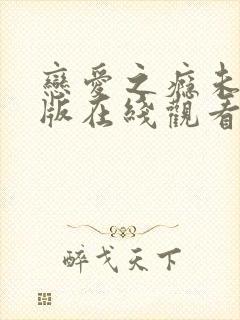 戀愛之癮未
版在綫觀看
醉戈天下